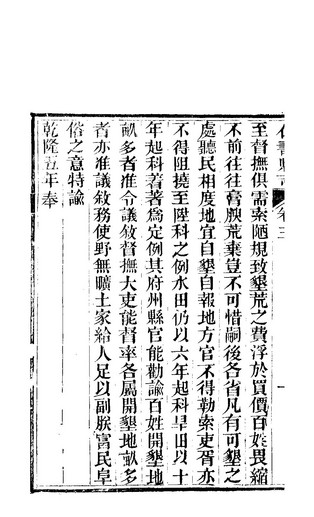 卷三
至督撫俱需索陋規致墾荒之費浮於買價百姓畏縮
不前往往膏腴荒棄豈不可惜嗣後各省凡有可墾之
處聽民相度地宜自墾自報地方官不得勒索吏胥亦
不得阻撓至陞科之例水田仍以六年起科旱田以十
年起科著著爲定例其府州縣官能勸諭百姓開墾地
畝多者准令議敘督撫大吏能督率各屬開墾地畝多
者亦准議敘務使野無曠土家給人足以副朕富民阜
俗之意特諭
乾隆五年奉